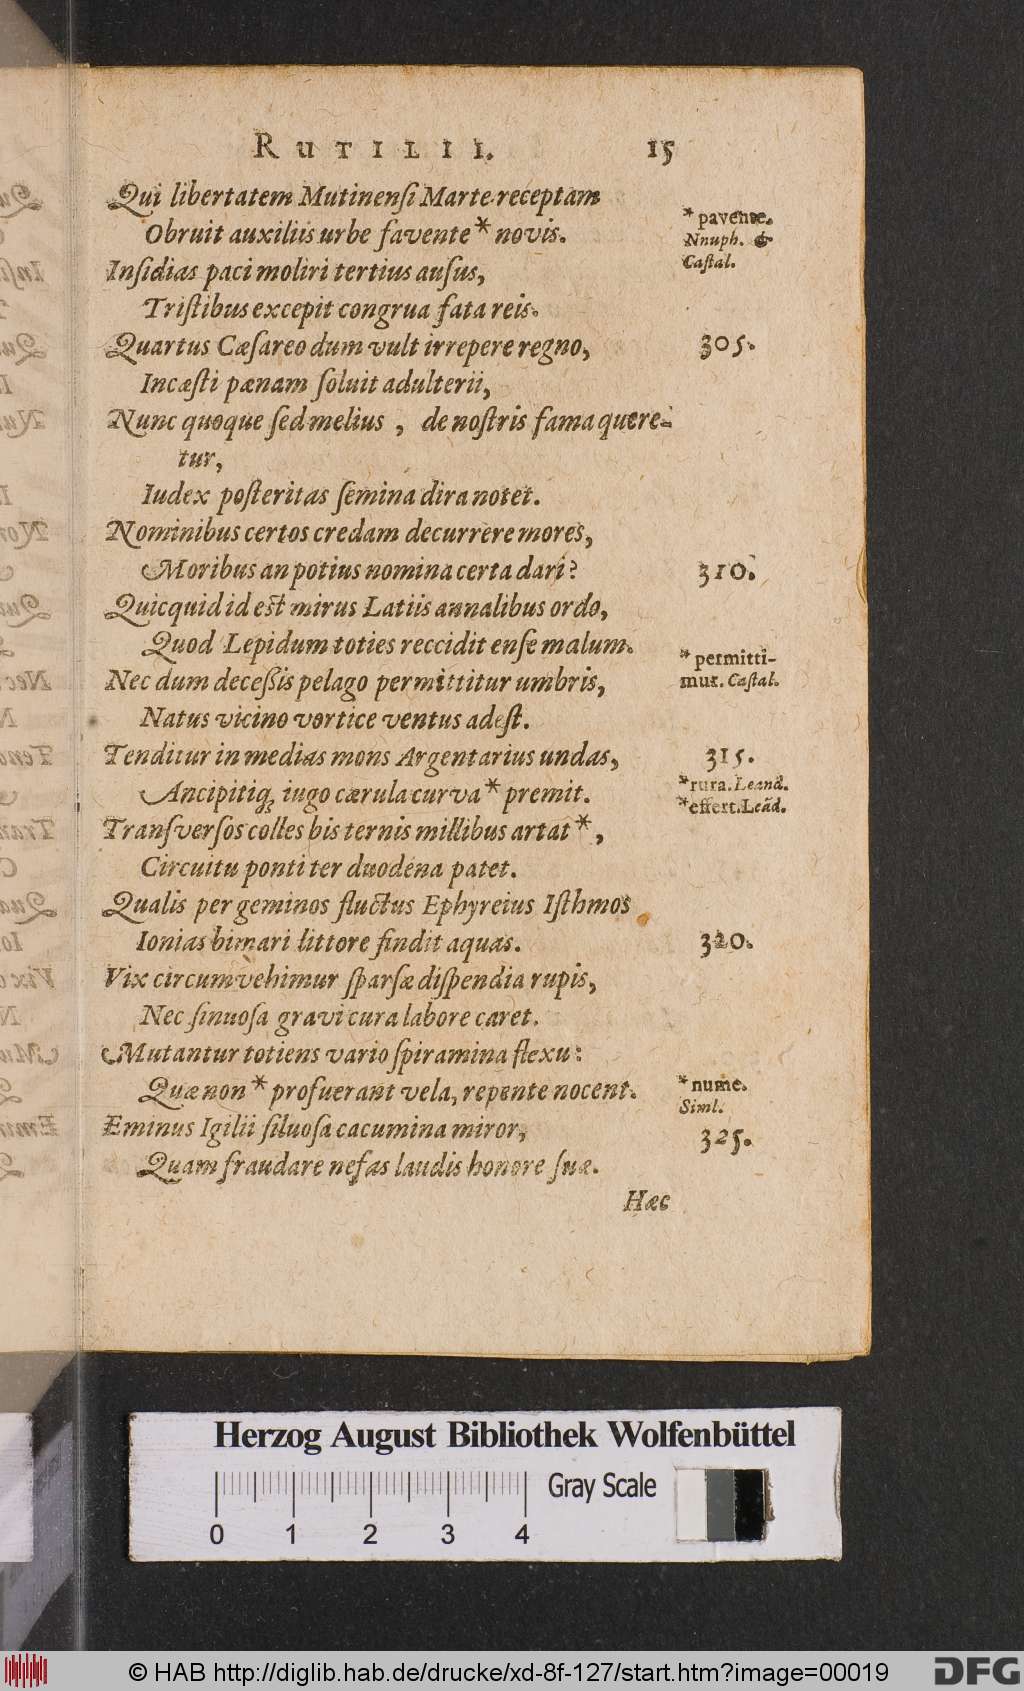 RUTILII. 15
Qui libertatem Mutinensi Marte receptam
Obruit auxiliis urbe favente * novis.
* pavente.
Nnuph. &
Castal.
Insidias paci moliri tertius ausus,
Tristibus excepit congrua fata reis.
Quartus Cæsareo dum vult irrepere regno, 305.
Incæsti pænam soluit adulterii,
Nunc quoque sed melius , de nostris fama quere-
tur,
Iudex posteritas semina dira notet.
Nominibus certos credam decurrere mores,
Moribus an potius nomina certa dari? 310.
Quicquid id est mirus Latiis annalibus ordo,
Quod Lepidum toties reccidit ense malum.
* permitti-
mur. Castal.
Nec dum decessis pelago permittitur umbris,
Natus vicino vortice ventus adest.
Tenditur in medias mons Argentarius undas, 315.
Ancipitiq; iugo cærula curva * premit.
* rura. Leand.
* effert. Leãd.
Transversos colles bis ternis millibus artat *,
Circuitu ponti ter duodena patet.
Qualis per geminos fluctus Ephyreius Isthmos
Ionias bimari littore findit aquas. 320.
Vix circumvehimur sparsæ dispendia rupis,
Nec sinuosa gravi cura labore caret.
Mutantur totiens vario spiramina flexu:
Quæ non * profuerant vela, repente nocent.
* nume.
Siml.
Eminus Igilii siluosa cacumina miror, 325.
Quam fraudare nefas laudis honore suæ.
Hæc
Herzog August Bibliothek Wolfenbüttel
Gray Scale
0 1 2 3 4
© HAB http://diglib.hab.de/drucke/xd-8f-127/start.htm?image=00019
DFG